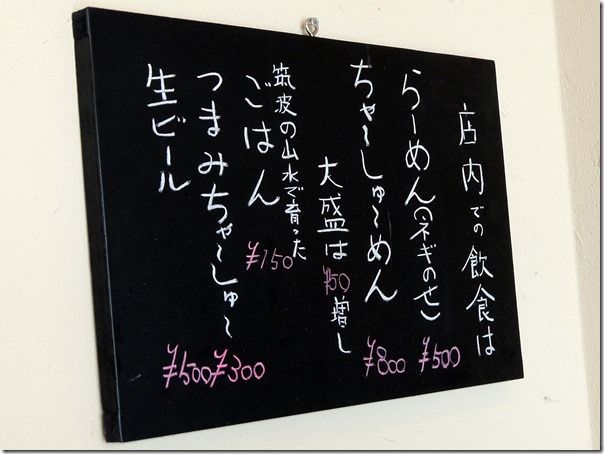 店内での飲食は
らーめん(ネギのせ) ¥500
ちゃ〜しゅ〜めん ¥800
大盛は¥50増し
筑波の山水で育った
ごはん ¥150
つまみちゃ〜しゅ〜 ¥300
生ビール ¥500